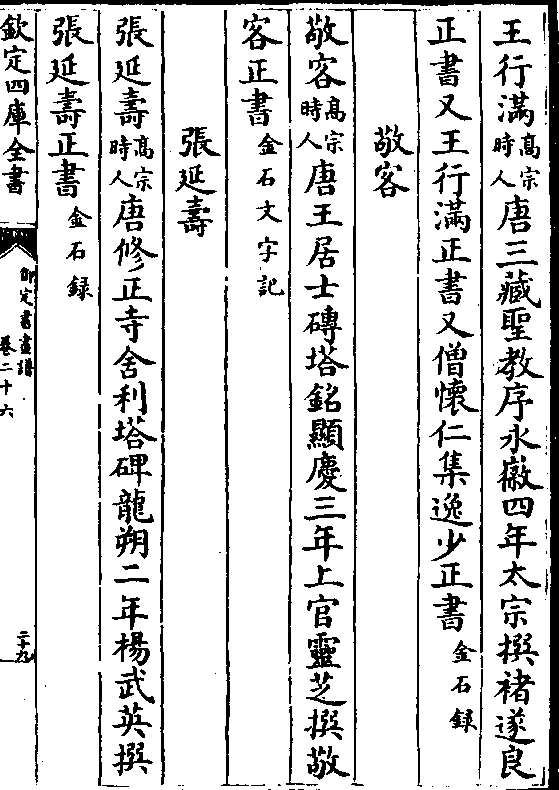 王行滿高宗時人唐三藏聖教序永徽四年太宗撰褚遂良
正書又王行滿正書又僧懷仁集逸少正書金石録
敬客
敬客高宗時人唐王居士磚塔銘顯慶三年上官靈芝撰敬
客正書金石文字記
張延壽
張延壽高宗時人唐修正寺舍利塔碑龍朔二年楊武英撰
張延壽正書金石録
欽定四庫全書
御定書畫譜
卷二十六
二十九